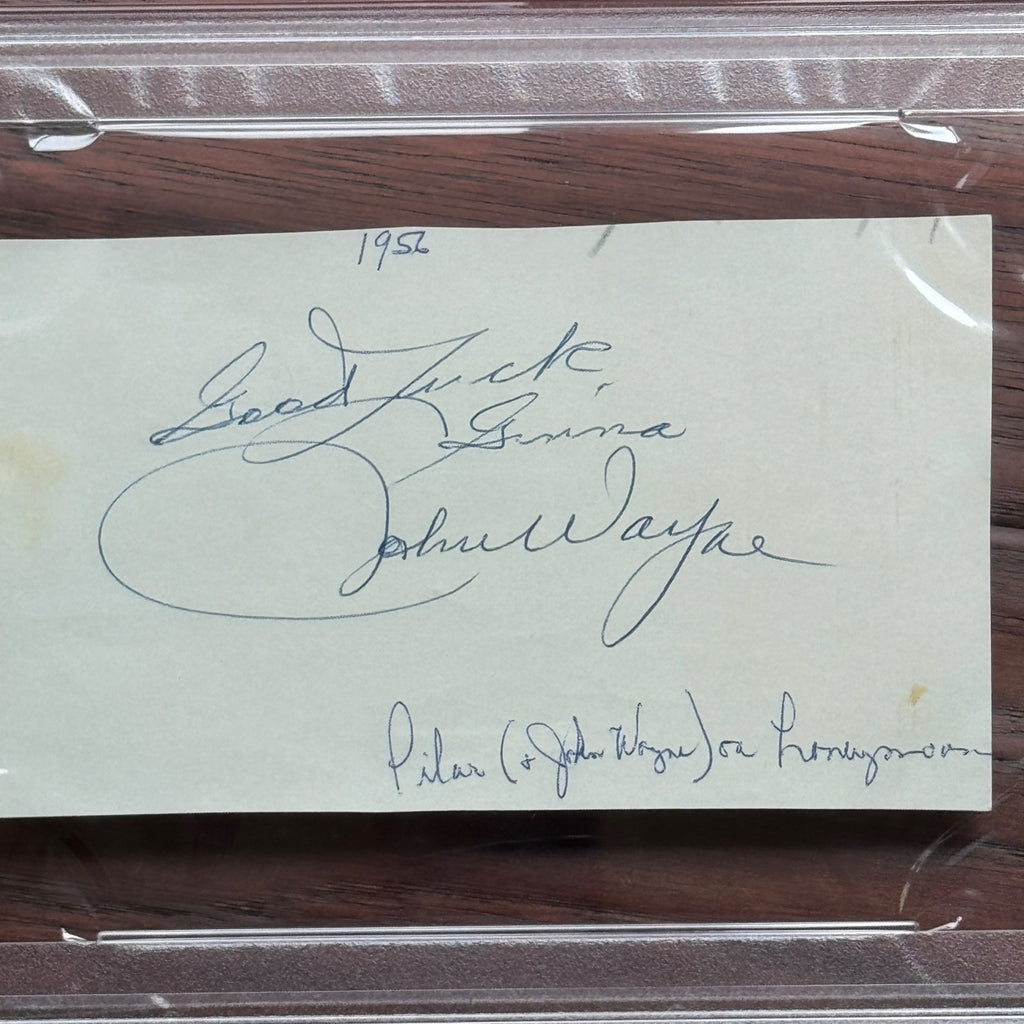 1956
Good Luck,
Ginna
John Wayne
Pilar (+ John Wayne) on honeymoon